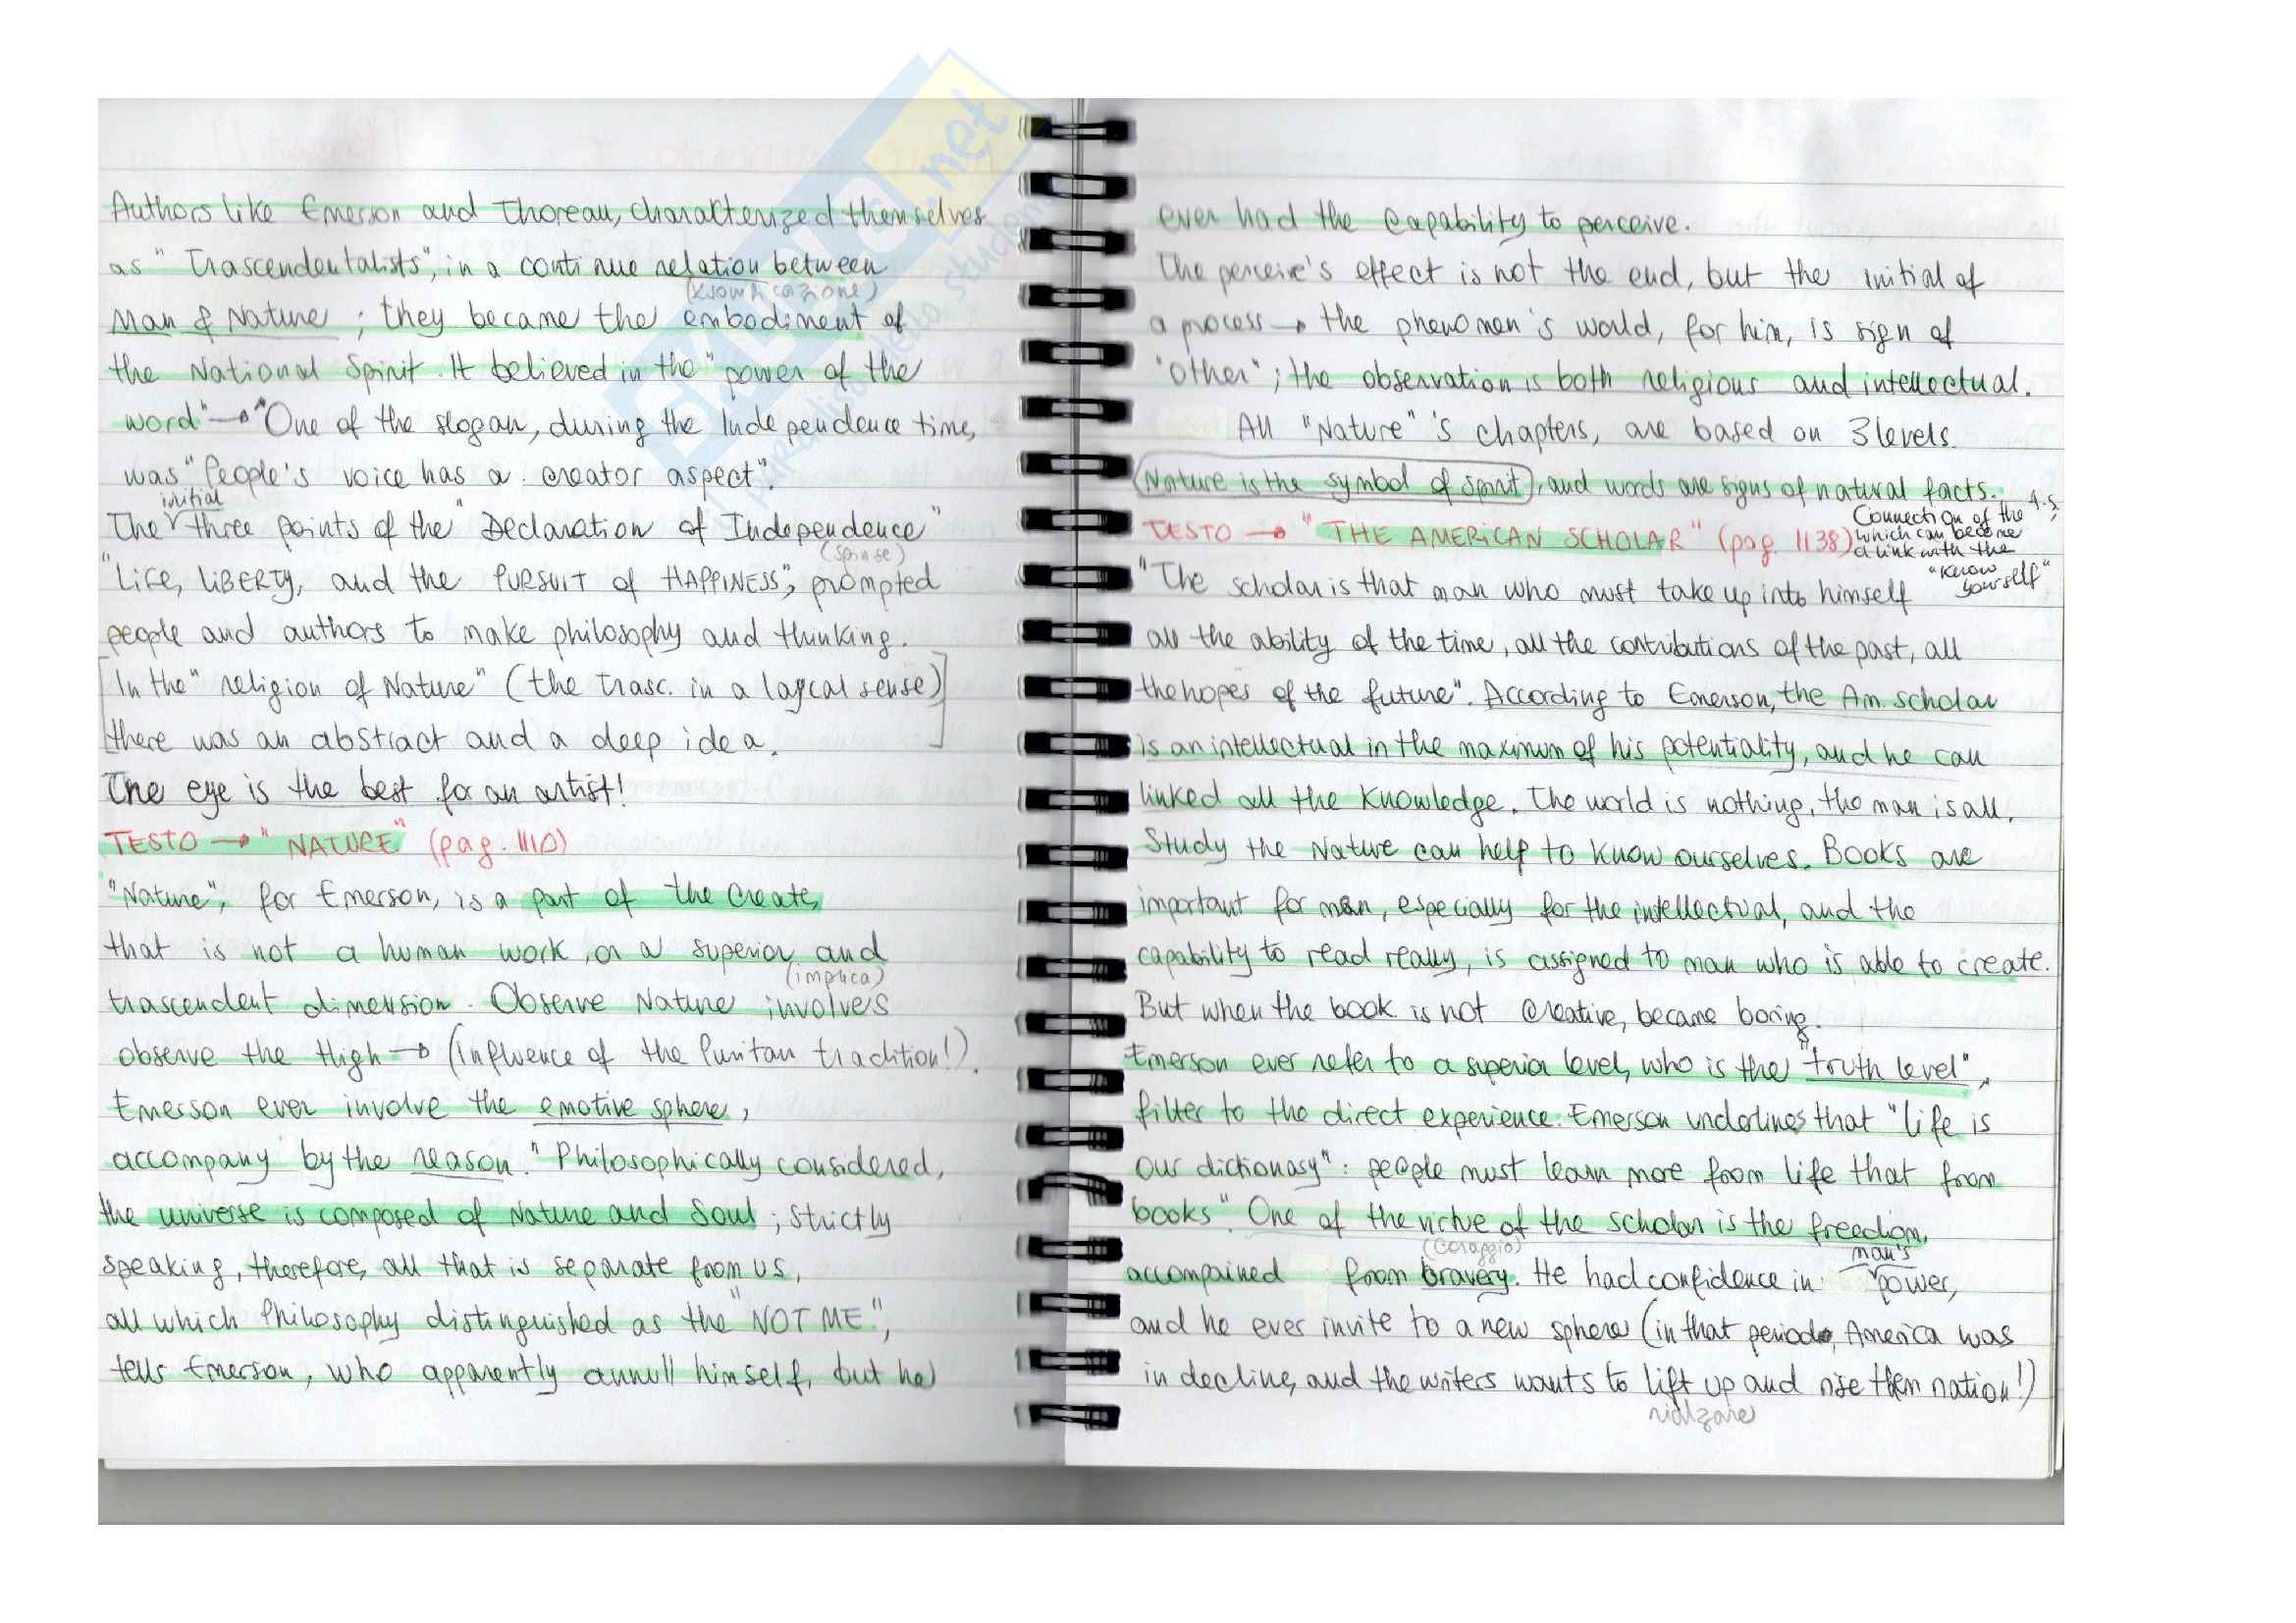 Authors like Emerson and Thoreau, characterized themselves
as "Trascendentalists", in a continue relation between
Man & Nature ; they became the embodiment of
the National Spirit. It believed in the "power of the
word" → "One of the slogan, during the Independence time,
was "People's voice has a creator aspect".
initial
The three points of the "Declaration of Independence"
(spinse)
"Life, LIBERTY, and the PURSUIT of HAPPINESS", prompted
people and authors to make philosophy and thinking.
[In the "religion of Nature" (the trasc. in a logical sense)
there was an abstract and a deep idea.]
The eye is the best for an artist!
TESTO → "NATURE" (pag. 1110)
"Nature", for Emerson, is a part of the create,
that is not a human work, or a superior and
(implica)
trascendent dimension. Observe Nature involves
observe the High → (influence of the Puritan tradition!).
Emerson ever involve the emotive sphere,
accompany by the reason. "Philosophically considered,
the universe is composed of Nature and Soul ; strictly
speaking, therefore, all that is separate from us,
all which Philosophy distinguished as the "NOT ME",
tells Emerson, who apparently annull himself, but he
ever had the capability to perceive.
The perceive's effect is not the end, but the initial of
a process → the phenomen's world, for him, is sign of
"other" ; the observation is both religious and intellectual.
All "Nature" 's chapters, are based on 3 levels.
Nature is the symbol of Spirit, and words are signs of natural facts.
TESTO → "THE AMERICAN SCHOLAR" (pag. 1138)
Connection of the A.S,
which can become
a link with the
"Know
yourself"
"The scholar is that man who must take up into himself
all the ability of the time, all the contributions of the past, all
the hopes of the future". According to Emerson, the Am. scholar
is an intellectual in the maximum of his potentiality, and he can
linked all the Knowledge. The world is nothing, the man is all.
Study the Nature can help to know ourselves. Books are
important for man, especially for the intellectual, and the
capability to read really, is assigned to man who is able to create.
But when the book is not creative, became boring.
Emerson ever refer to a superior level, who is the "truth level",
filter to the direct experience. Emerson underlines that "life is
our dictionary" : people must learn more from life that from
books". One of the virtue of the scholar is the freedom,
(coraggio)
accompained from bravery. He had confidence in man's power,
and he ever invite to a new sphere (in that period, America was
in decline, and the writers wants to lift up and rise then nation!)
rialzare